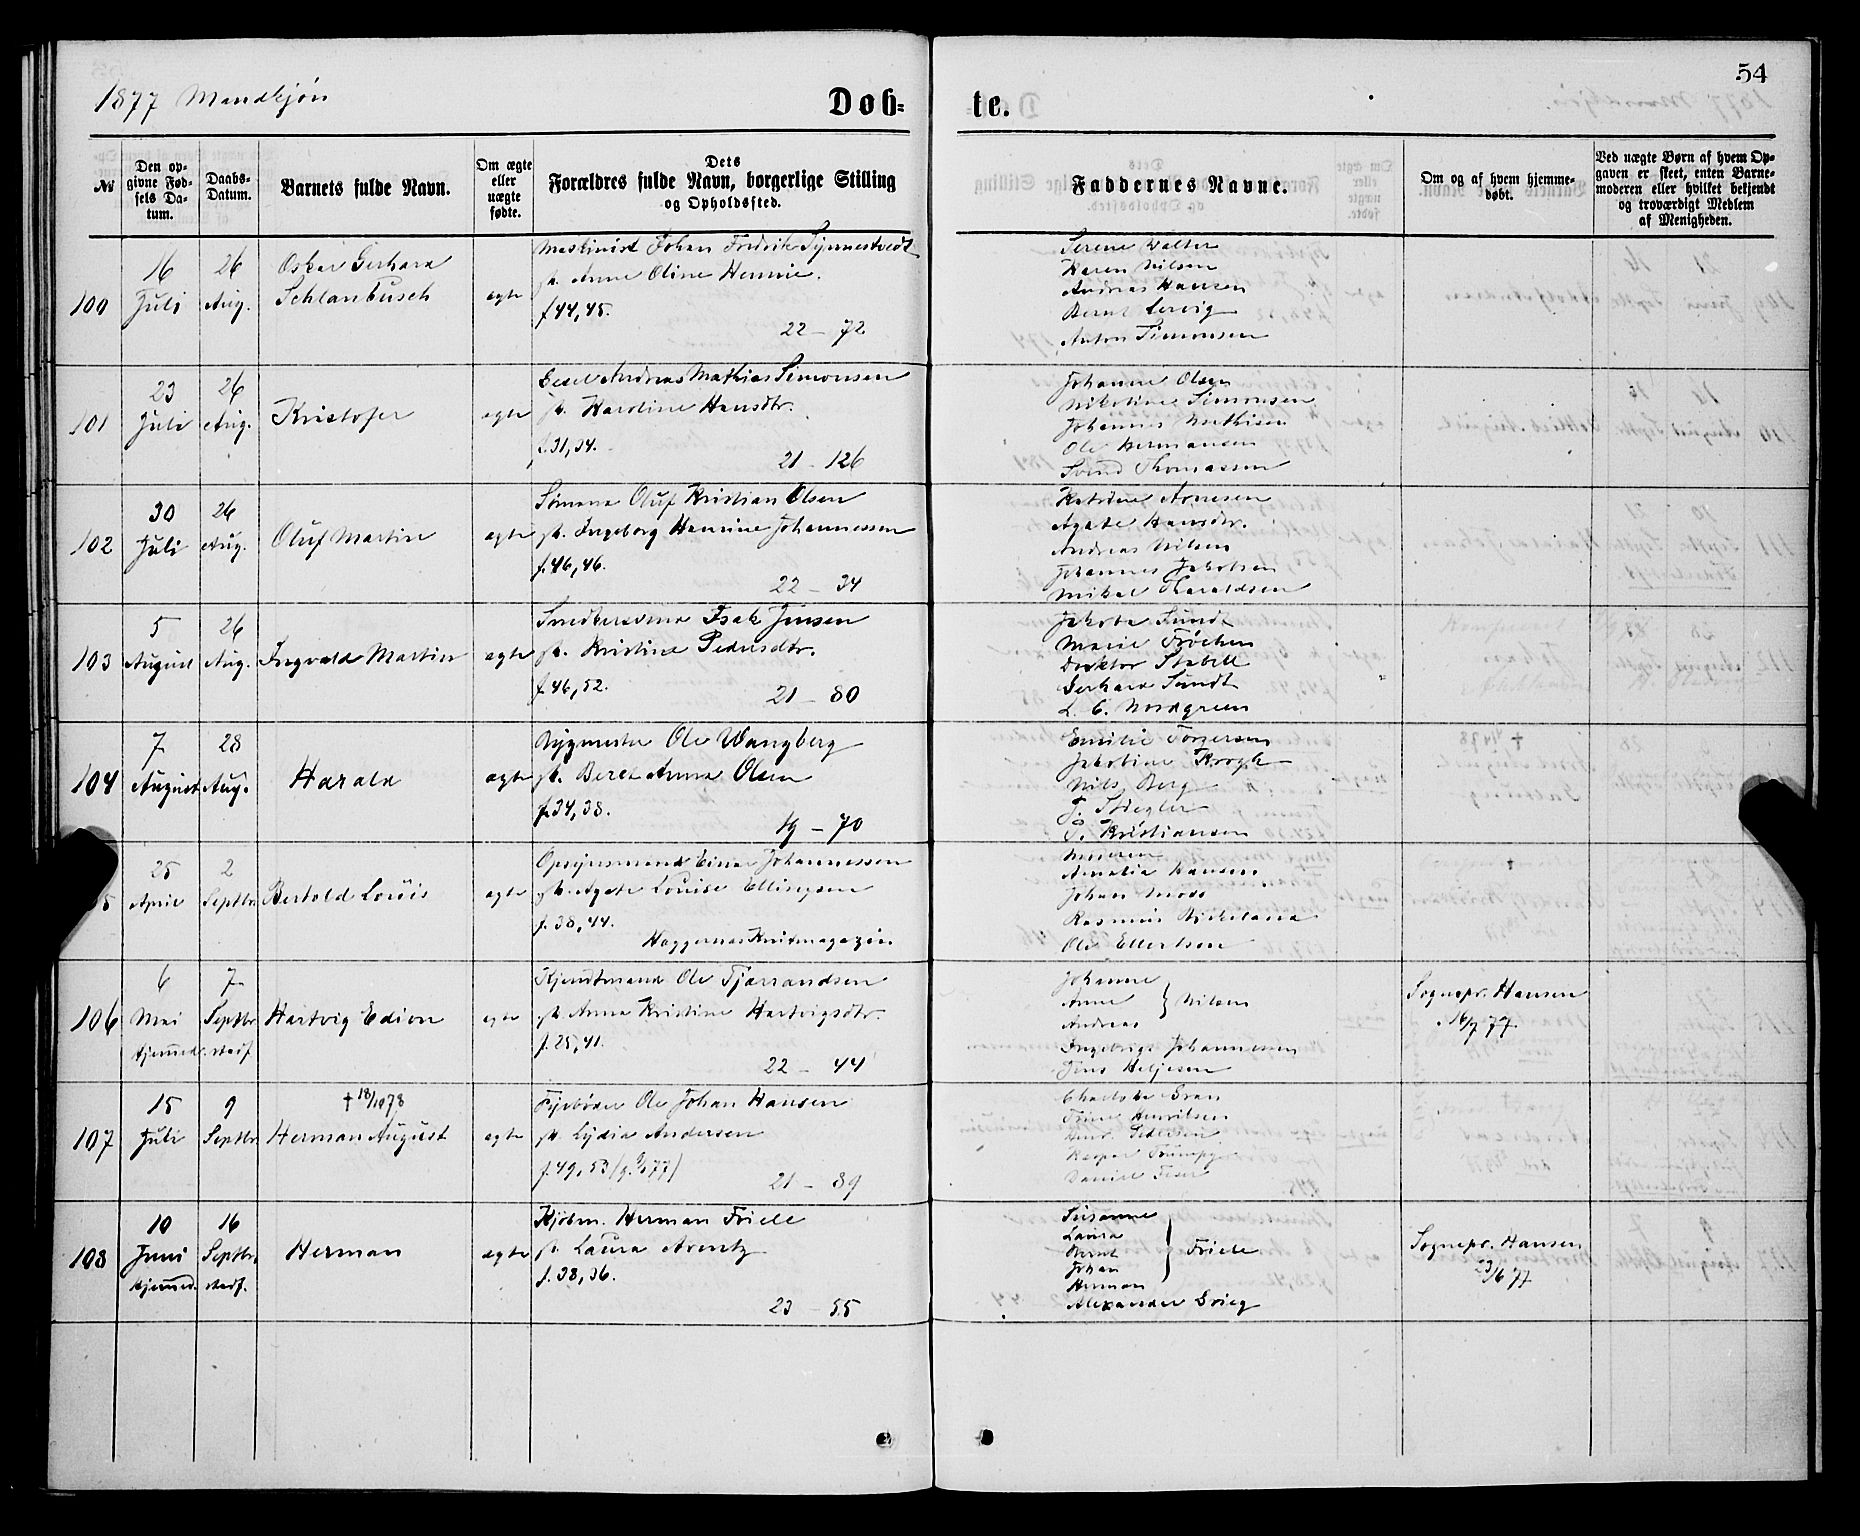 54
1877 Mandkjøn
Døb- te.
№
Den op-
givne Fød-
sels Da-
tum.
Daabs-
Datum.
Barnets fulde Navn.
Om ægte
eller
uægte
fødte.
Dets
Forældres fulde Navn, borgerlige Stilling
og Opholdssted.
Faddernes Navne.
Om og af hvem hjemme-
døbt.
Ved uægte Børn af hvem Op-
gaven er skeet, enten Barne-
moderen eller hvilket bekjendt
og troværdigt Medlem
af Menigheden.
100
16
Juli
26
Aug.
Oskar Gerhard
Schlanbusch
ægte
Maskinist Johan Fredrik Synnestvedt
Anne Oline
f. 44, 45.
22 - 72
Serene Walter
Karen Nilsen
Andreas Hansen
Bernt Lervig
Anton Simonsen
101
23
Juli
26
Aug.
Kristofer
ægte
Andreas Mathias Simonsen
Karoline Hansdtr.
f. 31, 34.
21 - 126
Johanne Olsen
Nikoline Simonsen
Johannes Mathisen
Ole Hermansen
Svend Thomassen
102
30
Juli
26
Aug.
Oluf Martin
ægte
Sömand Oluf Kristian Olsen
Ingeborg Hansine Johannessen
f. 46, 46.
22 - 34
Katrine Arnesen
Agate Hansdtr.
Andreas Nilsen
Johannes Jakobsen
Mikal Haraldsen
103
5
August
26
Aug.
Ingvald Martin
ægte
Isak Jensen
Kristine Pedersdtr.
f. 46, 52.
21 - 80
Jakobe Sundt
Marie
Doktor Stabell
Gerhard Sundt
L. C. Nordgreen
104
7
August
28
Aug.
Harald
ægte
Bygmester Ole Wangberg
Beret Anna Olsen
f. 34, 38.
19 - 70
Emilie Torgersen
Jakobine Krogh
Nils Berg
J. Stiegler
Kristiansen
25
April
2
Septbr.
Bertold Louis
ægte
Opsynsmand Einar Johannessen
Agate Louise Ellingsen
f. 38, 44.
Haggernæs Krudmagazin.
Moderen
Amalia Hansen
Johan Moss
Rasmus Birkeland
Ole Ellertsen
106
6
Mai
7
Septbr.
hjemmed. stadf.
Hartvig Edion
ægte
Kjendtmand Ole Tjærandsen
Anna Kristine Hartvigsdtr.
f. 25, 41.
22 - 44
Johanne
Anne } Nilsen
Andreas
Ingeborg Johannessen
Jens Heljesen
Sognepr. Hansen
16/7 77
107
15
Juli
9
Septbr.
† 18/10 78
Herman August
ægte
Fyrbøder Ole Johan Hansen
Lydia Andersen
f. 49, 53 (g. 9/9 77)
21 - 89
Charlotte Gran
Trine Henriksen
Henr. Pedersen
Kaspar Trumpy
Daniel
108
10
Juni
16
Septbr.
hjemmed. stadf.
Herman
ægte
Kjøbm. Herman Friele
Laura Arentz
f. 38, 36.
23 - 55
Susanne
Laura
Bernt } Friele
Johan
Herman
Alexander Grieg
Sognepr. Hansen
23/6 77